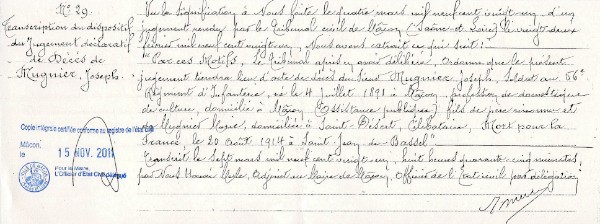 N° 29.
Transcription du dispositif
du Jugement déclaratif
de Décès de
Mugnier, Joseph.
Copie intégrale certifiée conforme au registre de l'état civil
Mâcon,
le 15 NOV. 2011
Pour le Maire,
L'Officier d'Etat Civil délégué
Vu la signification à Nous faite le quatre mars mil neuf cent vingt un, d'un
jugement rendu par le Tribunal civil de Mâcon (Saône et Loire) le vingt deux
février mil neuf cent vingt un, Nous avons extrait ce qui suit:
"Par ces Motifs, le Tribunal après en avoir délibéré, ordonne que le présent
jugement tiendra lieu d'acte de décès du sieur Mugnier Joseph, soldat au 56e
Régiment d'Infanterie, né le 4 juillet 1891 à Mâcon, profession de domestique
de culture, domicilié à Mâcon (Assistance publique) fils de père inconnu et
de Mugnier Marie, domiciliée à Saint-Désert, Célibataire, Mort pour la
France, le 20 août 1914 à Saint-Jean-de-Bassel"
transcrit le sept mars mil neuf cent vingt un, huit heures quarante cinq minutes,
par Nous Adjoint au Maire de Mâcon, Officier de l'Etat civil par délégation